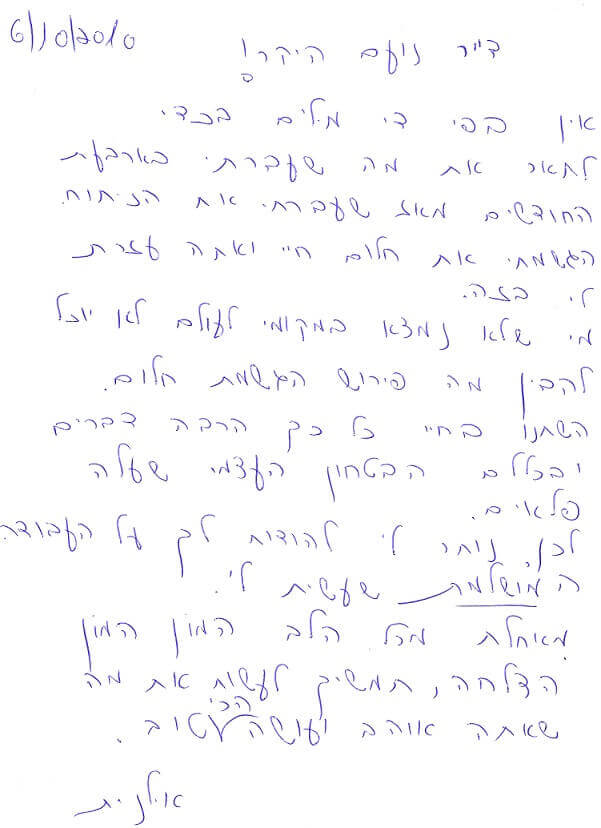 6/10/2010
ד"ר נועם היקר!
אין בפי די מילים בכדי
לתאר את מה שעברתי בארבעת
החודשים מאז שעברתי את הניתוח.
הגשמתי את חלום חיי ואתה עזרת
לי בזה.
מי שלא נמצא במקומי לעולם לא יוכל
להבין מה פירוש הגשמת חלום.
השתנו בחיי כל כך הרבה דברים
ובכללם הבטחון העצמי שעלה
פלאים.
לכן, נותר לי להודות לך על העבודה
המושלמת שעשית לי.
מאחלת מכל הלב המון המון
הצלחה, תמשיך לעשות את מה
שאתה אוהב ועושה הכי טוב.
אילנית